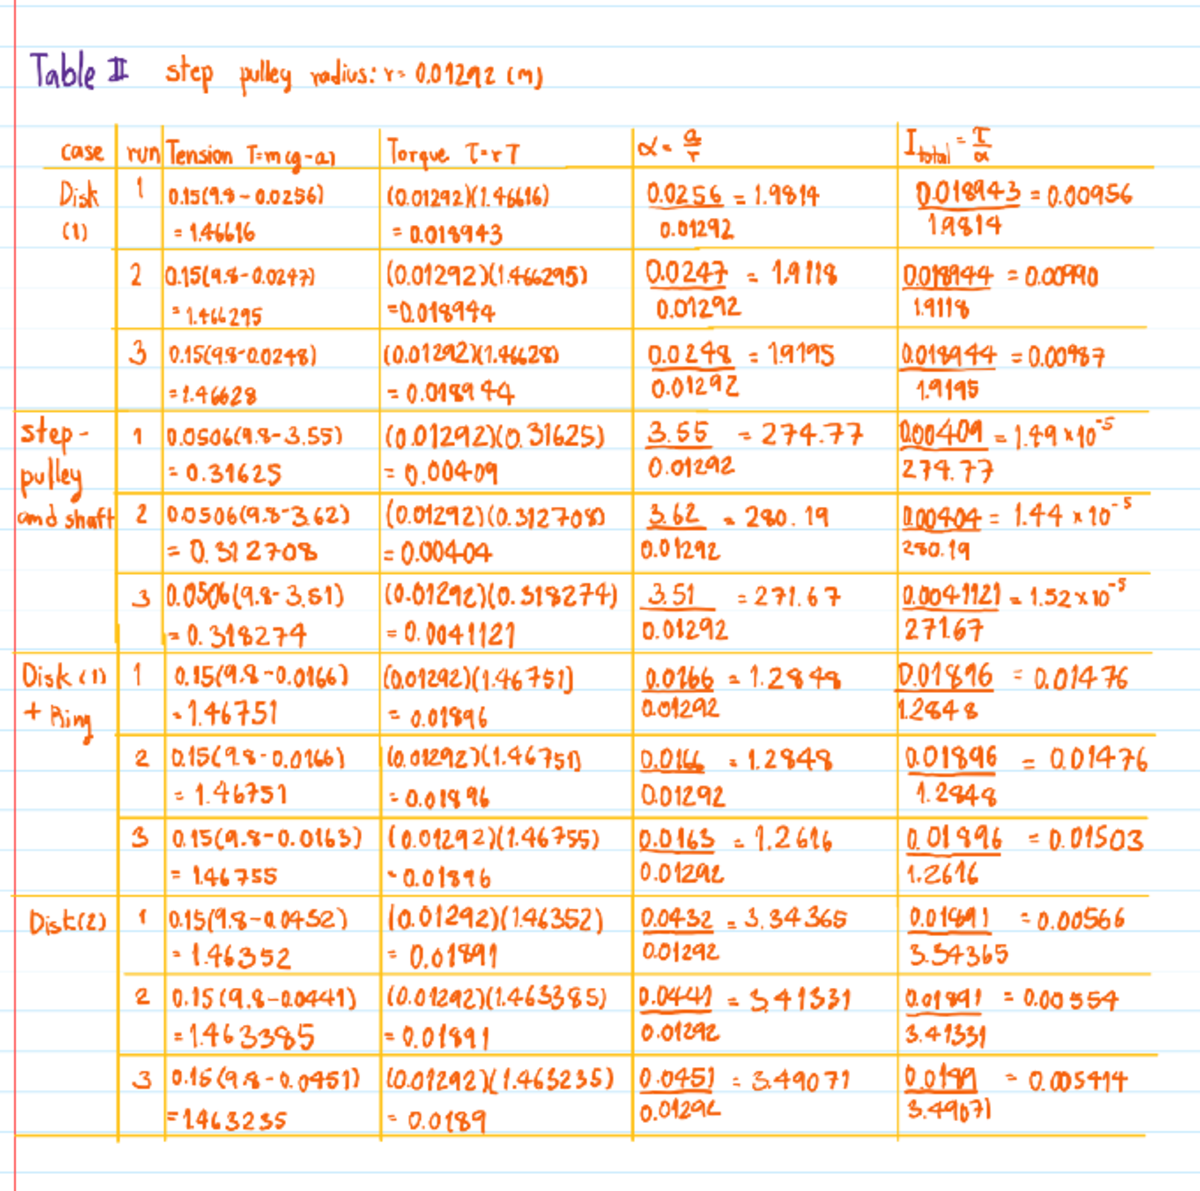 Table II step pulley radius: r = 0.01292 (m)
case run Tension T=m(g-a) Torque τ=rT α = a/r I total = τ/α
Disk (1) 1 0.15(9.8-0.0256) (0.01292)(1.46616) 0.0256/0.01292 = 1.9814 0.018943/1.9814 = 0.00956
= 1.46616 = 0.018943
2 0.15(9.8-0.0247) (0.01292)(1.466295) 0.0247/0.01292 = 1.9118 0.018944/1.9118 = 0.00990
= 1.466295 =0.018944
3 0.15(9.8-0.0248) (0.01292)(1.46628) 0.0248/0.01292 = 1.9195 0.018944/1.9195 = 0.00987
= 1.46628 = 0.018944
step-pulley and shaft 1 0.0506(9.8-3.55) (0.01292)(0.31625) 3.55/0.01292 = 274.77 0.00409/274.77 = 1.49 × 10⁻⁵
= 0.31625 = 0.00409
2 0.0506(9.8-3.62) (0.01292)(0.312708) 3.62/0.01292 = 280.19 0.00404/280.19 = 1.44 × 10⁻⁵
= 0.312708 = 0.00404
3 0.0506(9.8-3.51) (0.01292)(0.318274) 3.51/0.01292 = 271.67 0.0041121/271.67 = 1.52 × 10⁻⁵
= 0.318274 = 0.0041121
Disk (1) + Ring 1 0.15(9.8-0.0166) (0.01292)(1.46751) 0.0166/0.01292 = 1.2848 0.01896/1.2848 = 0.01476
= 1.46751 = 0.01896
2 0.15(9.8-0.0166) (0.01292)(1.46751) 0.0166/0.01292 = 1.2848 0.01896/1.2848 = 0.01476
= 1.46751 = 0.01896
3 0.15(9.8-0.0163) (0.01292)(1.46755) 0.0163/0.01292 = 1.2616 0.01896/1.2616 = 0.01503
= 1.46755 = 0.01896
Disk(2) 1 0.15(9.8-0.0432) (0.01292)(1.46352) 0.0432/0.01292 = 3.34365 0.01891/3.34365 = 0.00566
= 1.46352 = 0.01891
2 0.15(9.8-0.0441) (0.01292)(1.463385) 0.0441/0.01292 = 3.41331 0.01891/3.41331 = 0.00554
= 1.463385 = 0.01891
3 0.15(9.8-0.0451) (0.01292)(1.463235) 0.0451/0.01292 = 3.49071 0.0189/3.49071 = 0.005414
=1.463235 = 0.0189